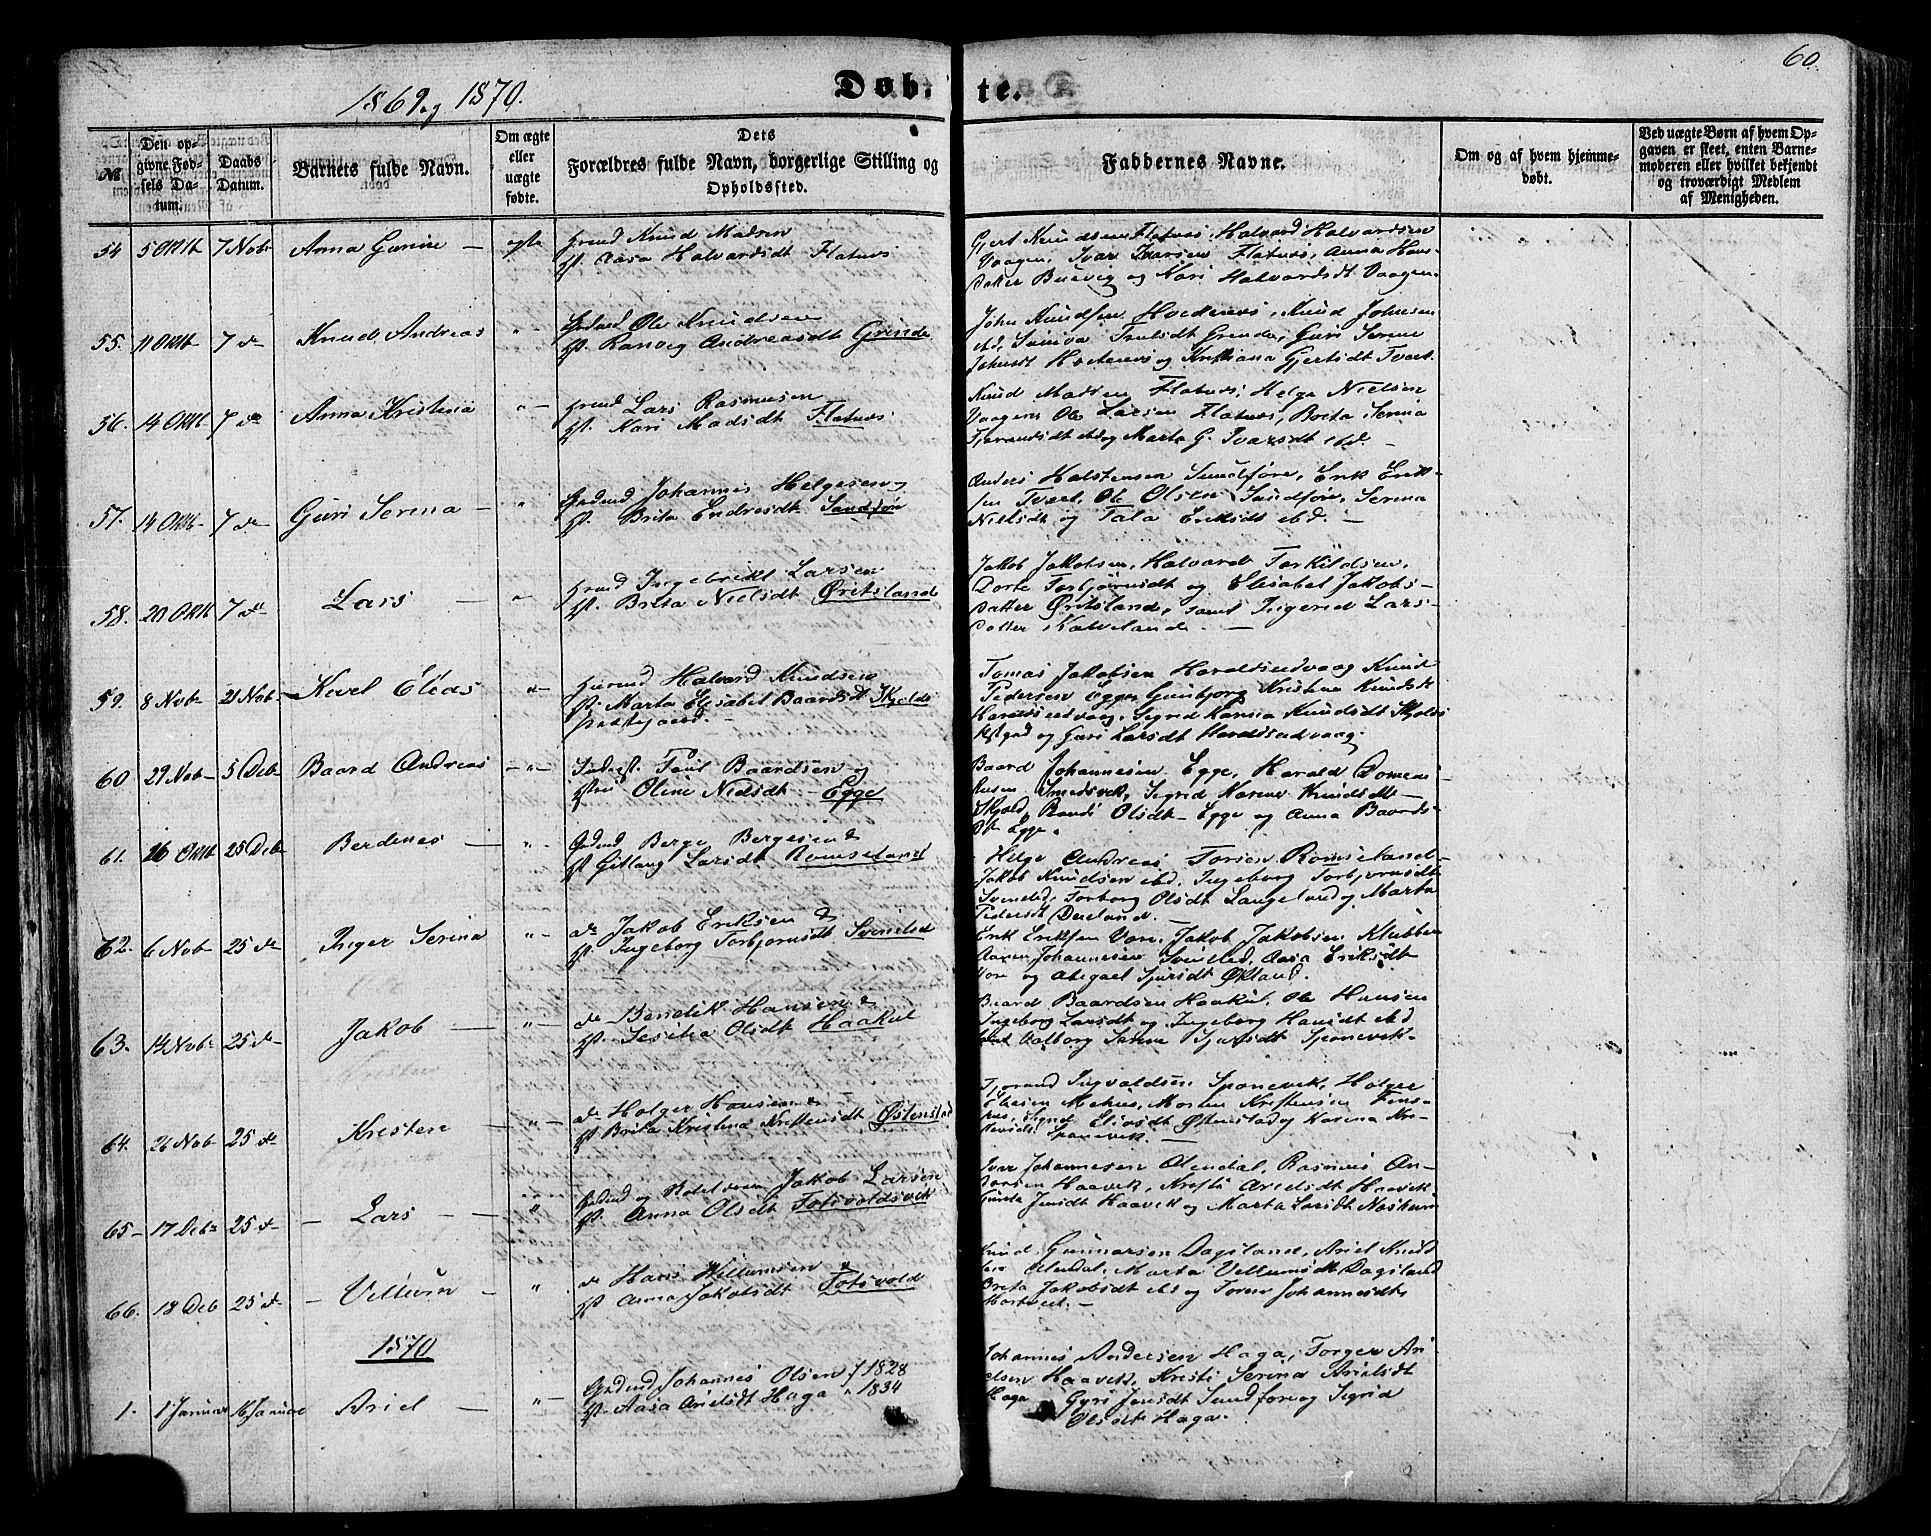 60.
1869 og 1870.
Døb- te.
№
Den opgivne Fødsels Datum.
Daabs Datum.
Barnets fulde Navn.
Om ægte eller uægte fødte.
Dets
Forældres fulde Navn, borgerlige Stilling og
Opholdssted.
Faddernes Navne.
Om og af hvem hjemmedøbt.
Ved uægte Børn af hvem Opgaven er skeet, enten Barnemoderen eller hvilket bekjendt og troværdigt Medlem af Menigheden.
54 5 Oktb 7 Nobr Anna Gurine — ægte
Knud Madsen
Aasa Halvardsdt Flatnæs
Gjert Knudsen Flatnæs, Halvard Halvardsen
Vaagen, Ivar Ivarsen Flatnæs, Anna Hans
datter Buevig og Kari Halvardsdt Vaagen.
55. 11 Oktb 7 de Knud Andreas " -
Ole Knudsen
Ranveg Andreasdt Grinde
John Knudsen, Knud Johnsen
Grinde, Guri Serine
Johnsdt og Kristiana Gjertsdt Tvæt.
56. 14 Oktb 7 de Anna Kristena " -
Lars Rasmusen
Kari Madsdt Flatnæs
Knud Madsen Flatnæs, Helge Nielsen
Vaagen, Ole Larsen Flatnæs, Brita Serina
og Marta G. Ivarsdt ibd. -
57. 14 Oktb 7 de Guri Serina - " -
Johannes Helgesen og
Brita Endresdt Sandføre
Anders Halstensen Sundføre, Erik Erik-
sen Tvæt, Ole Olsen Sundføre, Serina
Nielsdt og Tala Eriksdt ibd. -
58. 20 Oktb 7 de Lars - " -
Ingebrikt Larsen
Brita Nielsdt Øritsland
Jakob Jakobsen, Halvard Torkildsen,
Dorte Torbjørnsdt og Elisabet Jakobs-
datter Øritsland, samt Ingerid Lars-
datter Kalveland. -
59. 8 Nob- 21 Nob- Elias " -
Halvard Knudsen
Marta Elisabet Baardsdt Skjolds
præstegaard. -
Tomas Jakobsen Haraldseidvaag Knud
Pedersen Egge, Gunbjørg Kristine Knudsdt
Haraldseidvaag, Sigrid Karina Knudsdt Skjolds
og Guri Larsdt Haraldseidvaag.
60 29 Nob- 5 Deb Baard Andreas - " -
Baardsen og
Oline Nielsdt - Egge
Baard Johannesen Egge, Harald
Smedsvik, Sigrid Karine Knudsdt
Skjold, Olsdt - Egge og Anna Baards-
dt Egge.
61. 26 Oktb 25 Deb Berdines - " -
Gdmd Berge Bergesen &
Gitlaug Larsdt. Romseland
Helge Andreas Torsen Romseland
Jakob Knudsen ibd. Ingeborg Torbjørnsdt
Svineled, Torborg Olsdt Langeland og Marta
Pedersdt Dueland. -
62. 6 Nob- 25 de Inger Serina " -
do Jakob Eriksen &
Ingeborg Torbjørnsdt Svineled
Erik Eriksen Vore, Jakob Jakobsen Klubben
Aanen Johannesen Svineled, Aasa Eriksdt
Vore og Abigael Sjursdt Økland.
63. 14 Nob- 25 de Jakob - " -
do Bendik Hansen &
Olsdt Haakul
Baard Baardsen Haakul, Ole Hansen
Ingeborg Larsdt og Ingeborg Hansdt ibd
samt Aalborg Serine Sjursdt Sponevik-
64. 26 Nob 25 de Kristen - " -
do Holger Hansen &
Brita Kristina Kristensdt Østenstad
Ingvaldsen Sponevik, Holger
Eliesen Mehus, Morten Kristensen
Signe Eliesdt Østenstad og Karina
Sponevik. -
65- 17 Debr 25 de - Lars - - "
Jakob Larsen
Anna Olsdt Totsvoldsvik
Ivar Johannesen Alendal, Rasmus An-
dersen Haavik, Kristi Arielsdt Haavik,
Jensdt Haavik og Marta Larsdt
66. 18 Deb 25 de - Villum - "
do Hans Willumsen &
Anna Jakobsdt Totsvold
Knud Gunnarsen Dagsland, Ariel Knud-
sen Alendal, Marta Vellumsdt Dagsland
Brita Jakobsdt ibd og Toren Johannesdt,
1870
1. 1 Januar 16 Januar Ariel - " -
Gdmd Johannes Olsen f 1828
Aasa Arielsdt Haga " 1834
Johannes Andersen Haga, Torger Ari-
elsen Haavik, Kristi Serina Arielsdt
Haga Gyri Jensdt Sundføre og Sigrid
Olsdt Haga.